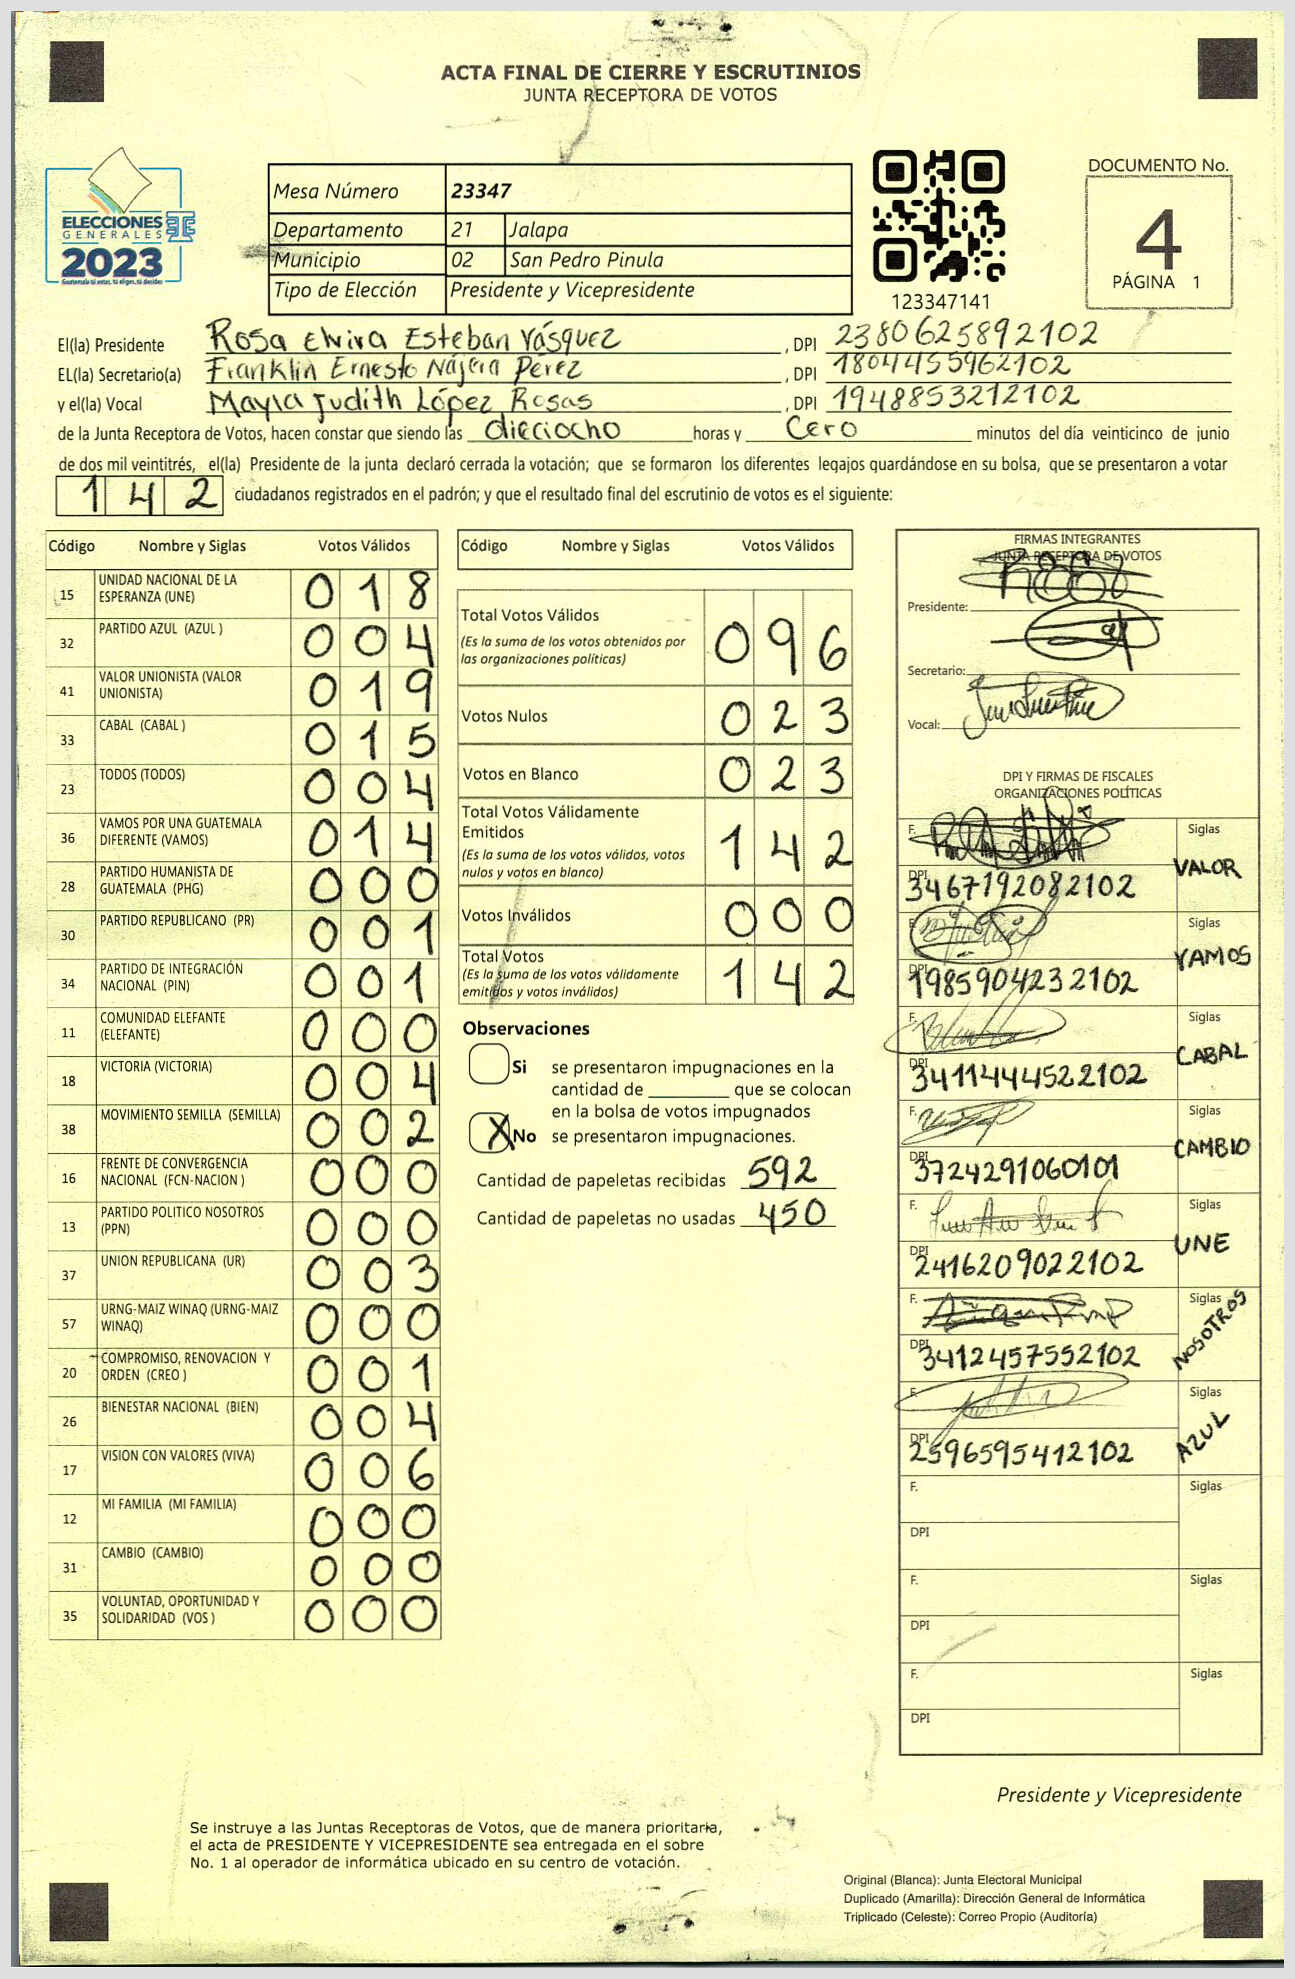 ACTA FINAL DE CIERRE Y ESCRUTINIOS
JUNTA RECEPTORA DE VOTOS
ELECCIONES
GENERALES
2023
Mesa Número 23347
Departamento 21 Jalapa
Municipio 02 San Pedro Pinula
Tipo de Elección Presidente y Vicepresidente
123347141
DOCUMENTO No.
4
PÁGINA 1
El(la) Presidente Rosa Elvira Esteban Vásquez, DPI 2380625892102
EL(la) Secretario(a) Franklin Ernesto Nájera Pérez, DPI 1804455962102
y el(la) Vocal Mayra Judith López Rosas, DPI 1948853212102
de la Junta Receptora de Votos, hacen constar que siendo las dieciocho horas y Cero minutos del día veinticinco de junio
de dos mil veintitrés, el(la) Presidente de la junta declaró cerrada la votación; que se formaron los diferentes legajos guardándose en su bolsa, que se presentaron a votar
142 ciudadanos registrados en el padrón; y que el resultado final del escrutinio de votos es el siguiente:
Código Nombre y Siglas Votos Válidos
15 UNIDAD NACIONAL DE LA ESPERANZA (UNE) 018
32 PARTIDO AZUL (AZUL ) 004
41 VALOR UNIONISTA (VALOR UNIONISTA) 019
33 CABAL (CABAL ) 015
23 TODOS (TODOS) 004
36 VAMOS POR UNA GUATEMALA DIFERENTE (VAMOS) 014
28 PARTIDO HUMANISTA DE GUATEMALA (PHG) 000
30 PARTIDO REPUBLICANO (PR) 001
34 PARTIDO DE INTEGRACIÓN NACIONAL (PIN) 001
11 COMUNIDAD ELEFANTE (ELEFANTE) 000
18 VICTORIA (VICTORIA) 004
38 MOVIMIENTO SEMILLA (SEMILLA) 002
16 FRENTE DE CONVERGENCIA NACIONAL (FCN-NACION ) 000
13 PARTIDO POLITICO NOSOTROS (PPN) 000
37 UNION REPUBLICANA (UR) 003
57 URNG-MAIZ WINAQ (URNG-MAIZ WINAQ) 000
20 COMPROMISO, RENOVACION Y ORDEN (CREO ) 001
26 BIENESTAR NACIONAL (BIEN) 004
17 VISION CON VALORES (VIVA) 006
12 MI FAMILIA (MI FAMILIA) 000
31 CAMBIO (CAMBIO) 000
35 VOLUNTAD, OPORTUNIDAD Y SOLIDARIDAD (VOS ) 000
Código Nombre y Siglas Votos Válidos
Total Votos Válidos 096
(Es la suma de los votos obtenidos por
las organizaciones políticas)
Votos Nulos 023
Votos en Blanco 023
Total Votos Válidamente
Emitidos 142
(Es la suma de los votos válidos, votos
nulos y votos en blanco)
Votos Inválidos 000
Total Votos 142
(Es la suma de los votos válidamente
emitidos y votos inválidos)
Observaciones
Si se presentaron impugnaciones en la
cantidad de ________ que se colocan
en la bolsa de votos impugnados
X No se presentaron impugnaciones.
Cantidad de papeletas recibidas 592
Cantidad de papeletas no usadas 450
FIRMAS INTEGRANTES
JUNTA RECEPTORA DE VOTOS
Presidente:
Secretario:
Vocal:
DPI Y FIRMAS DE FISCALES
ORGANIZACIONES POLÍTICAS
F. Siglas VALOR
DPI 3467192082102
F. Siglas VAMOS
DPI 1985904232102
F. Siglas CABAL
DPI 3411444522102
F. Siglas CAMBIO
DPI 3724291060101
F. Siglas UNE
DPI 2416209022102
F. Siglas NOSOTROS
DPI 3412457552102
F. Siglas AZUL
DPI 2596595412102
F. Siglas
DPI
F. Siglas
DPI
F. Siglas
DPI
Presidente y Vicepresidente
Se instruye a las Juntas Receptoras de Votos, que de manera prioritaria,
el acta de PRESIDENTE Y VICEPRESIDENTE sea entregada en el sobre
No. 1 al operador de informática ubicado en su centro de votación.
Original (Blanca): Junta Electoral Municipal
Duplicado (Amarilla): Dirección General de Informática
Triplicado (Celeste): Correo Propio (Auditoría)